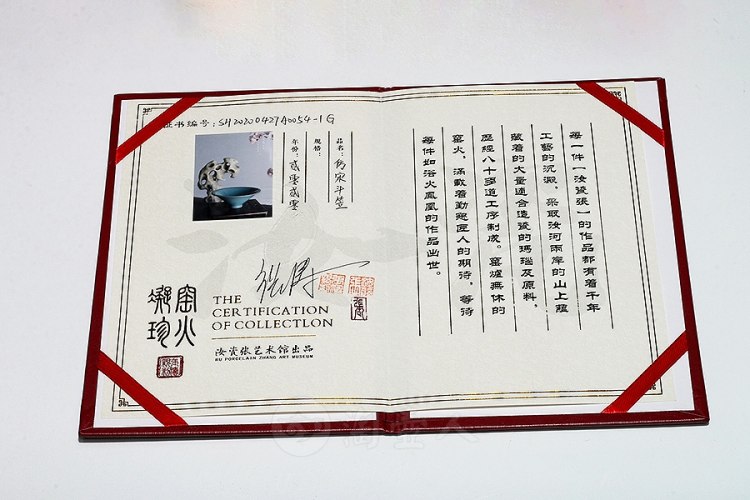 证书编号：SH20200427A0054-1G
品名：仿宋斗笠
规格：
年份：贰零贰零
THE
CERTIFICATION
OF COLLECTLON
汝瓷张艺术馆出品
RU PORCELAIN ZHANG ART MUSEUM
窑火
凝珍
每一件【汝瓷張】的作品都有着千年
工藝的沉澱，采取汝河兩岸的山上蘊
藏着的大量適合造瓷的瑪瑙及原料，
歷經八十多道工序制成。窑爐無休的
窑火，滿載着勤懇匠人的期待，等待
每件如浴火鳳凰的作品出世。